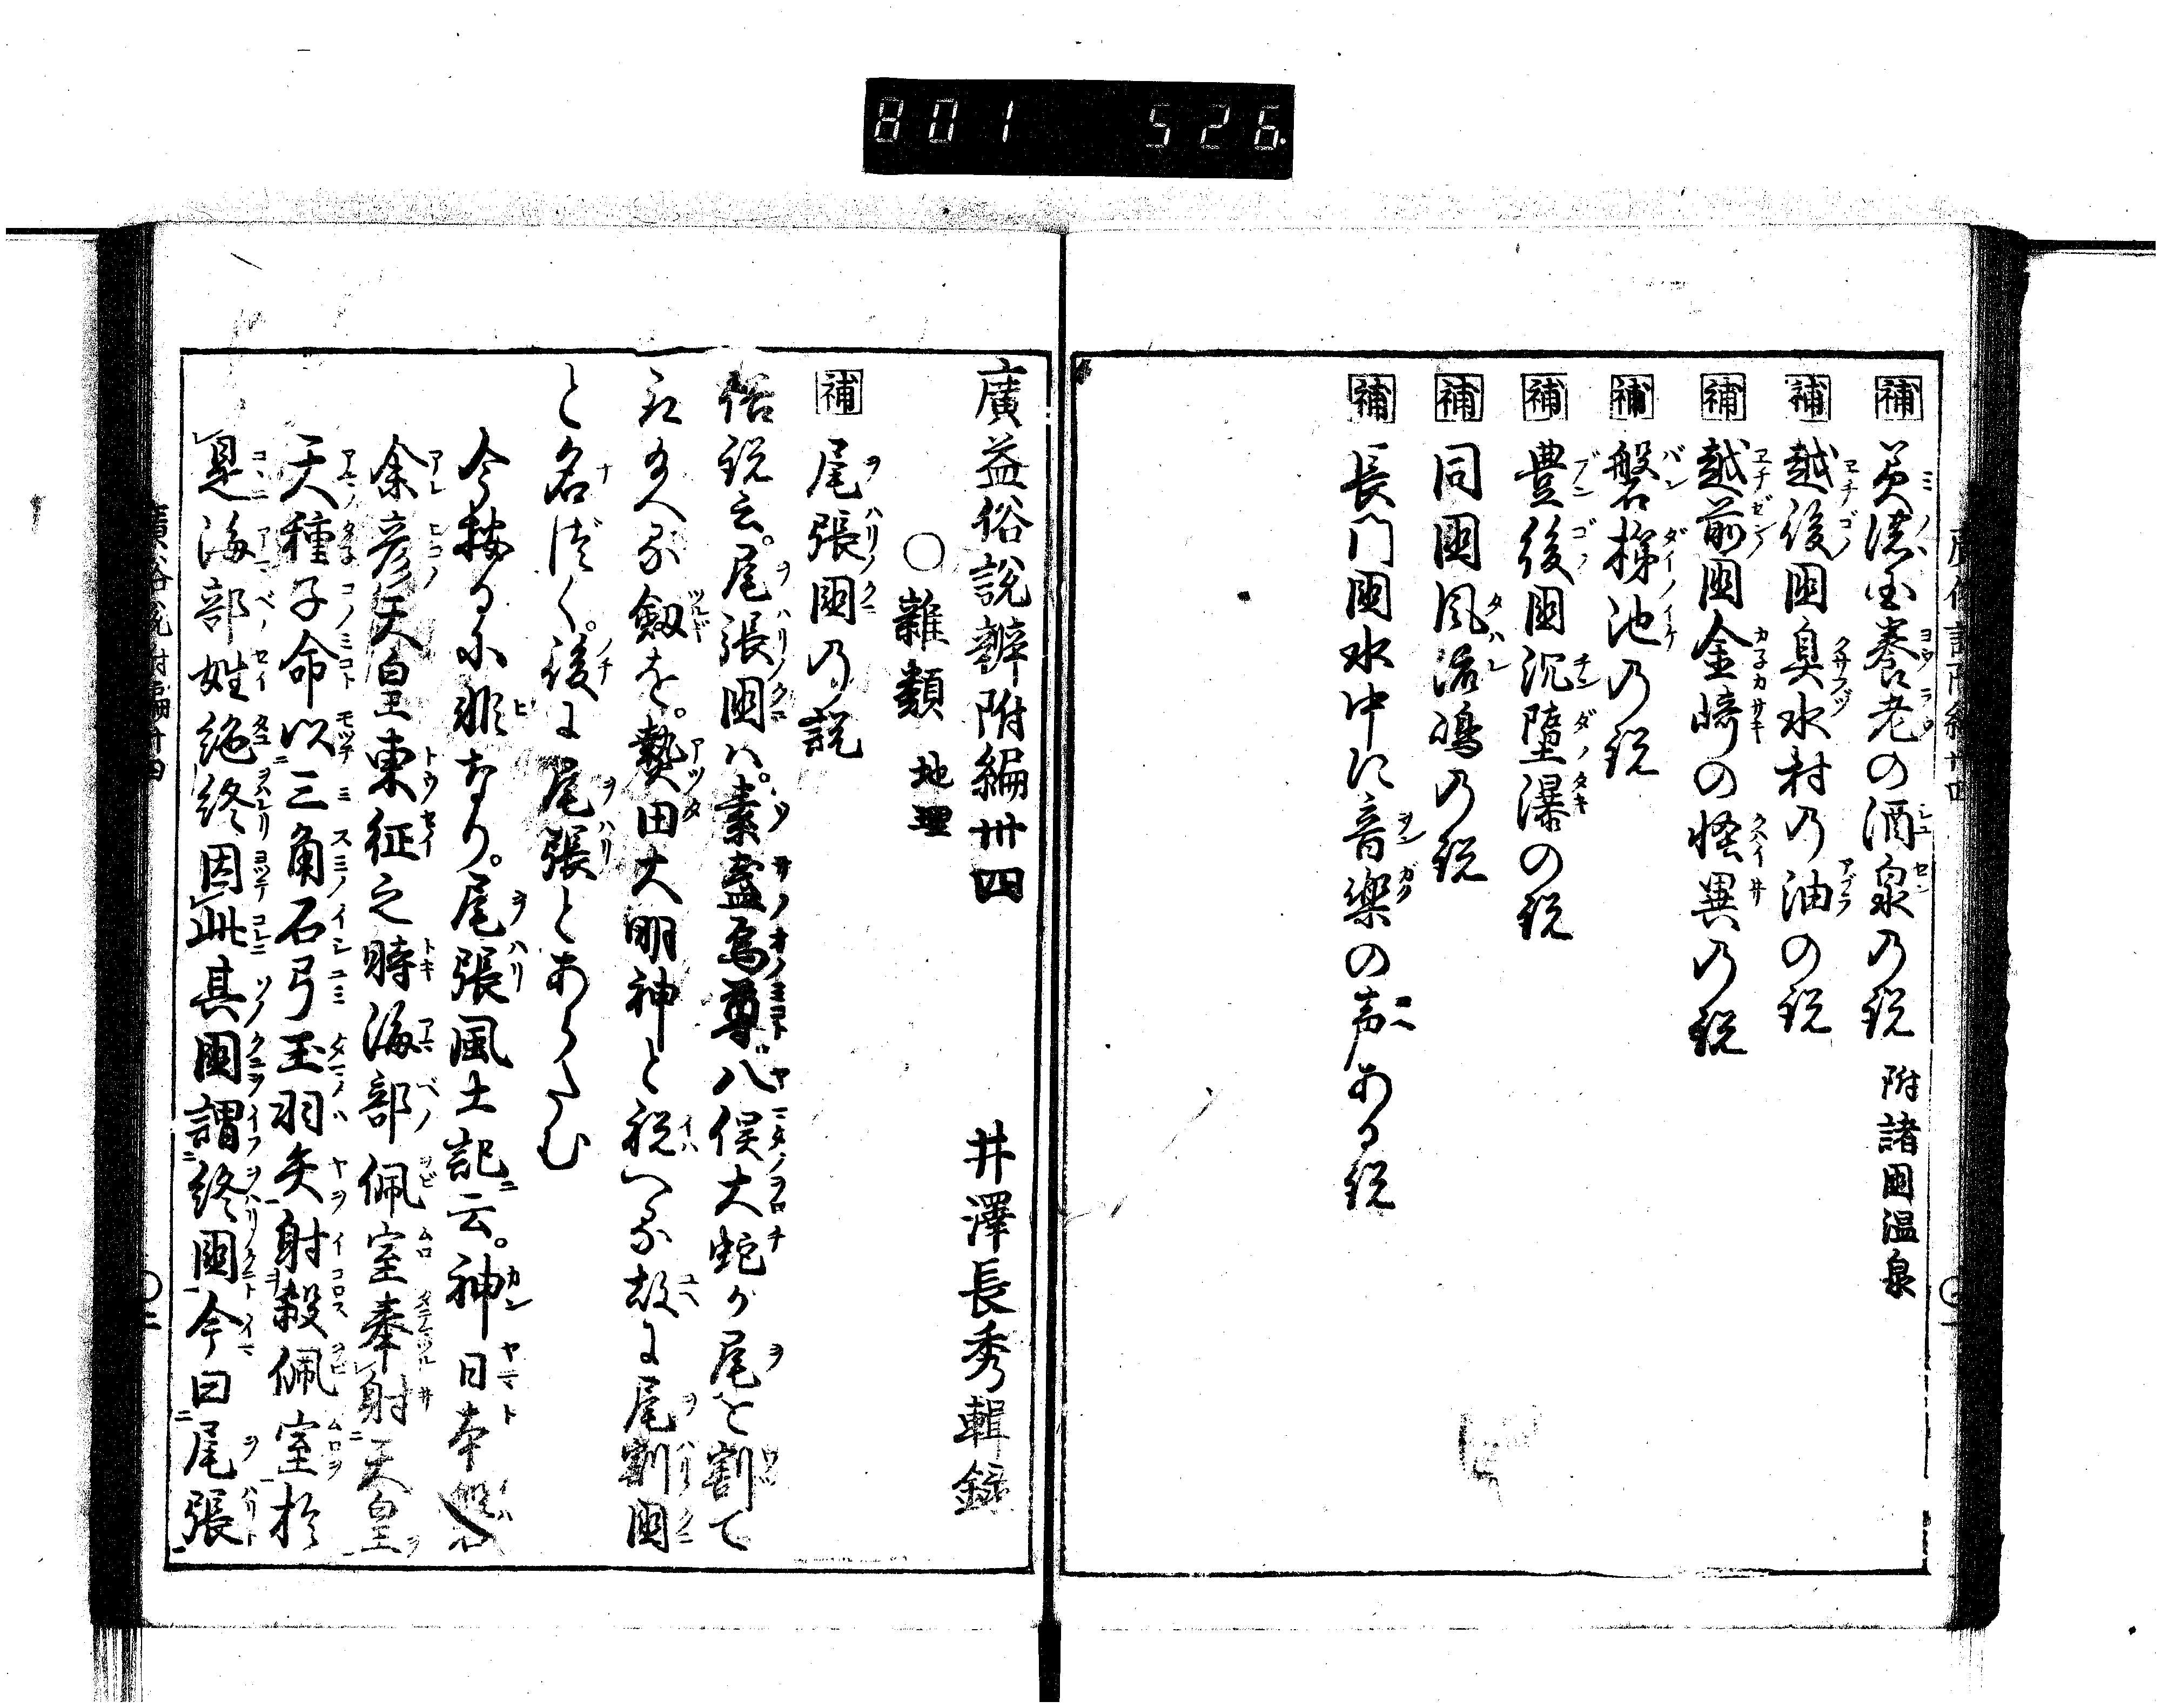 801 526
補 美濃国養老の酒泉の説 附諸國温泉
補 越後國臭水村の油の説
補 越前國金崎の怪異の説
補 磐梯池の説
補 豊後國沉堕瀑の説
補 同國風流嶋の説
補 長門國水中に音樂の声ある説
廣益俗說辨附編卅四 井澤長秀輯録
○雜類 地理
補 尾張國の説
俗説云。尾張國ハ。素盞烏尊。八俣大蛇が尾を割て
玉へる劔を。熱田大明神と祝へる故に尾割國
と名づく。後に尾張とあらたむ
今按るに非なり。尾張風土記云。神日本磐
余彦天皇東征之時海部佩室奉射天皇
天種子命以三角石弓玉羽矢射殺佩室於
是海部姓絶終因此其國謂終國今曰尾張
廣俗説附編廿四 ○二